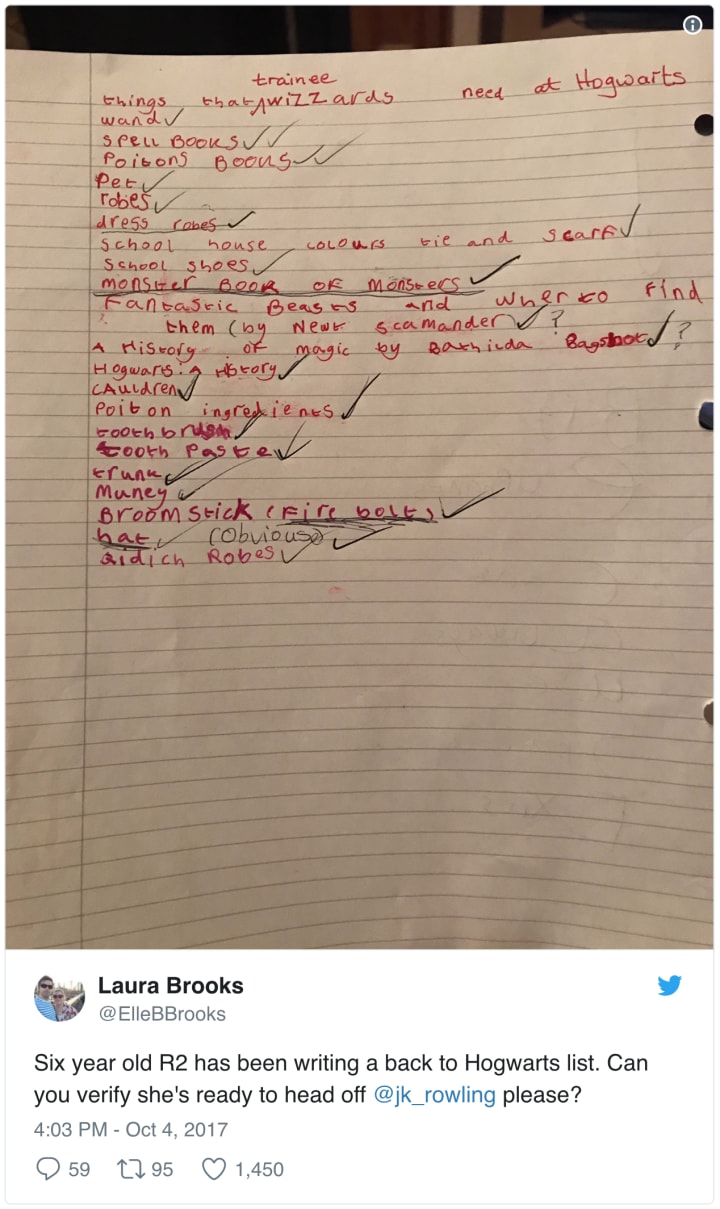 trainee
things that wizzards need at Hogwarts
wand
spell Books
Poitons Books
Pet
robes
dress robes
School house colours tie and scarf
School shoes
monster Book of Monsters
Fantastic Beasts and wher to Find
them (by Newt scamander ?
A History of magic by Bathilda Bagshot ?
Hogwarts: A History
cAuldren
Poiton ingredients
toothbrush
tooth Paste
trunk
Muney
BroomStick (Fire bolt)
hat (Obviouse)
Qidich Robes
Laura Brooks
@ElleBBrooks
Six year old R2 has been writing a back to Hogwarts list. Can
you verify she's ready to head off @jk_rowling please?
4:03 PM - Oct 4, 2017
59 95 1,450